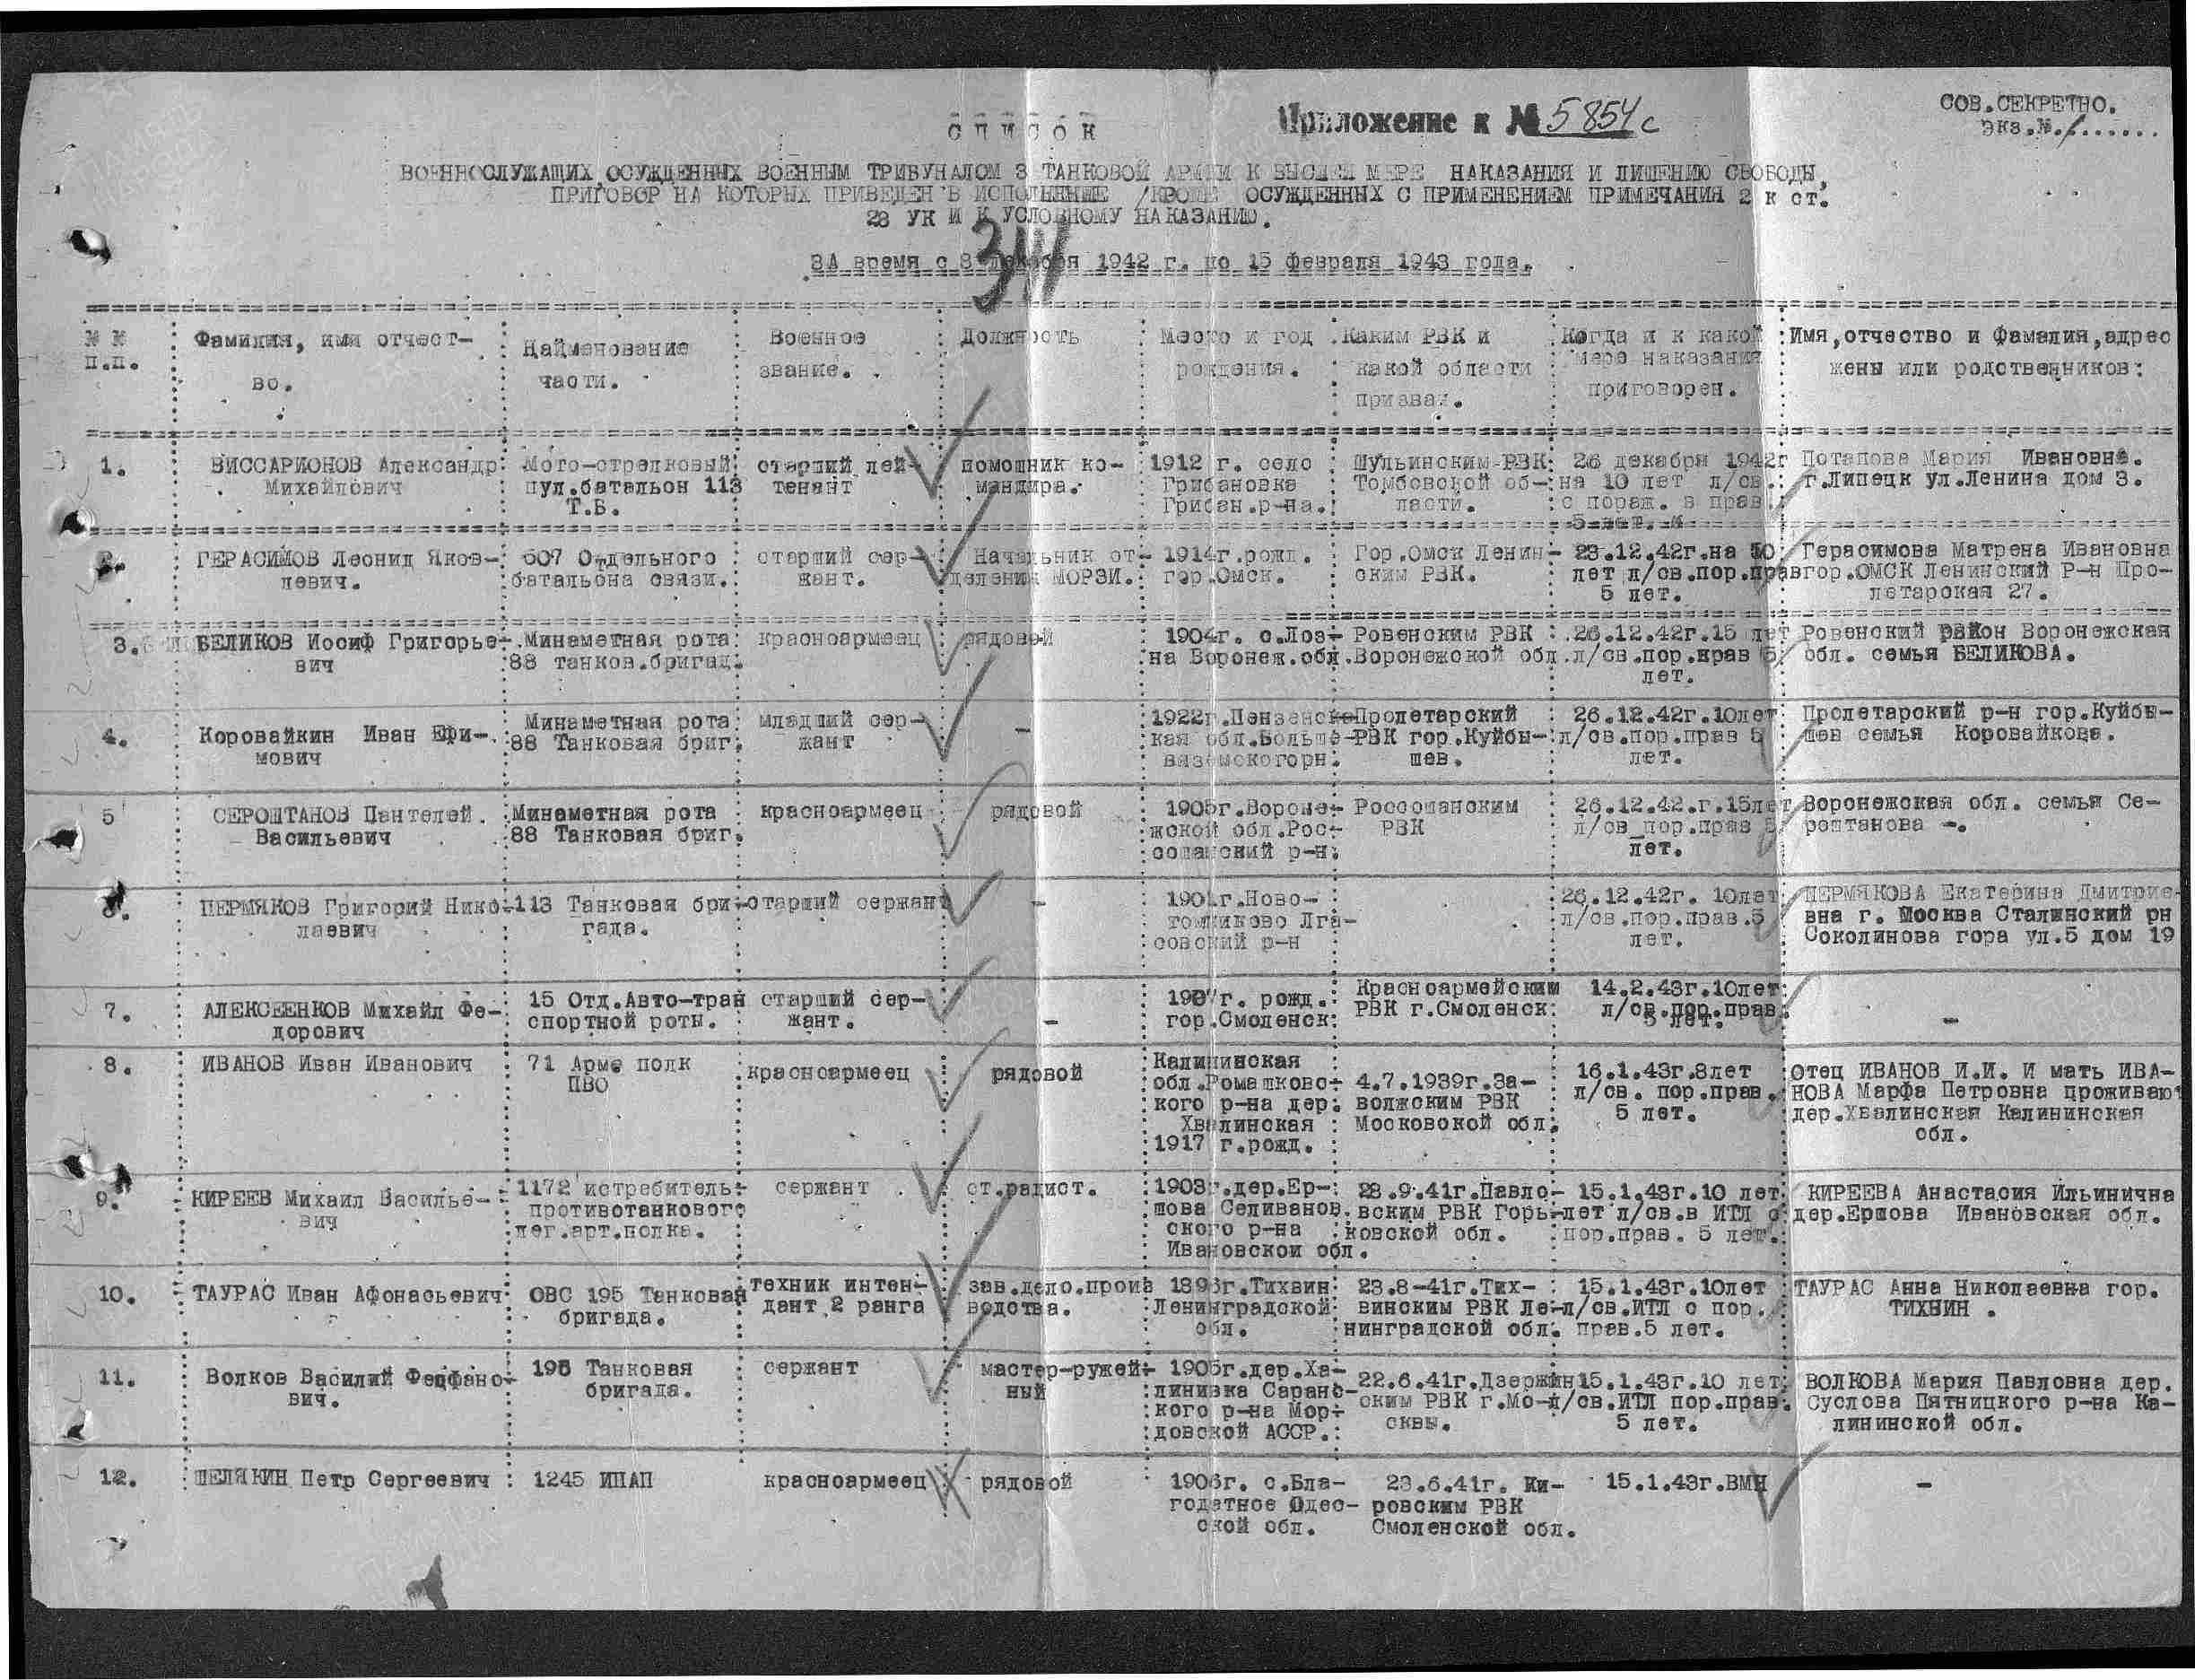 СПИСОК
Приложение к № 5854с
СОВ.СЕКРЕТНО.
экз.№.1......
ВОЕННОСЛУЖАЩИХ, ОСУЖДЕННЫХ ВОЕННЫМ ТРИБУНАЛОМ 3 ТАНКОВОЙ АРМИИ К ВЫСШЕЙ МЕРЕ НАКАЗАНИЯ И ЛИШЕНИЮ СВОБОДЫ,
ПРИГОВОР НА КОТОРЫХ ПРИВЕДЕН В ИСПОЛНЕНИЕ /КРОМЕ ОСУЖДЕННЫХ С ПРИМЕНЕНИЕМ ПРИМЕЧАНИЯ 2 к ст.
28 УК И К УСЛОВНОМУ НАКАЗАНИЮ.
ЗА время с 8 декабря 1942 г. по 15 февраля 1943 года.
№ № п.п.
Фамилия, имя отчест-
во.
Наименование
части.
Военное
звание.
Должность
Место и год
рождения.
Каким РВК и
какой области
призван.
Когда и к какой
мере наказания
приговорен.
Имя,отчество и Фамилия,адрес
жены или родственников:
1.
ВИССАРИОНОВ Александр
Михайлович
Мото-стрелковый
пул.батальон 113
Т.Б.
старший лей-
тенант
помощник ко-
мандира.
1912 г. село
Грибановка
Грибан.р-на.
Шульинским РВК
Томбовской об-
ласти.
26 декабря 1942г
на 10 лет л/св.
с пораж. в прав.
5 лет.
Потапова Мария Ивановна.
г.Липецк ул.Ленина дом 3.
2.
ГЕРАСИМОВ Леонид Яков-
левич.
607 Отдельного
батальона связи.
старший сер-
жант.
Начальник от-
деления МОРЗИ.
1914г.рожд.
гор.Омск.
Гор.Омск Ленин-
ским РВК.
23.12.42г.на 10
лет л/св.пор.прав
5 лет.
Герасимова Матрена Ивановна
гор.ОМСК Ленинский Р-н Про-
летарская 27.
3.
БЕЛИКОВ Иосиф Григорье-
вич
Минаметная рота
88 танков.бригад.
красноармеец
рядовой
1904г. с.Лоз-
на Воронеж.обл.
Ровенским РВК
Воронежской обл.
26.12.42г.15 лет
л/св.пор.прав 5
лет.
Ровенский район Воронежская
обл. семья БЕЛИКОВА.
4.
Коровайкин Иван Ефи-
мович
Минаметная рота
88 Танковая бриг.
младший сер-
жант
-
1922г.Пензенс
кая обл.Больше-
вяземскогорн.
Пролетарский
РВК гор.Куйбы-
шев.
26.12.42г.10лет
л/св.пор.прав 5
лет.
Пролетарский р-н гор.Куйбы-
шев семья Коровайкова.
5
СЕРОШТАНОВ Пантелей
Васильевич
Минаметная рота
88 Танковая бриг.
красноармеец
рядовой
1905г.Вороне-
жской обл.Рос-
сошанский р-н.
Россошанским
РВК
26.12.42.г.15лет
л/св пор.прав 5
лет.
Воронежская обл. семья Се-
роштанова -.
6.
ПЕРМЯКОВ Григорий Нико-
лаевич
113 Танковая бри-
гада.
старший сержант
-
г.Ново-
томниково Лга-
совский р-н
26.12.42г. 10лет
л/св.пор.прав.5
лет.
ПЕРМЯКОВА Екатерина Дмитрие-
вна г. Москва Сталинский рн
Соколинова гора ул.5 дом 19
7.
АЛЕКСЕЕНКОВ Михаил Фе-
дорович
15 Отд.Авто-тран
спортной роты.
старший сер-
жант.
-
1907г. рожд.
гор.Смоленск
Красноармейским
РВК г.Смоленск
14.2.43г.10лет
л/св.пор.прав.
5 лет.
-
8.
ИВАНОВ Иван Иванович
71 Арме полк
ПВО
красноармеец
рядовой
Калининская
обл.Ромашковс-
кого р-на дер.
Хвалинская
1917 г.рожд.
4.7.1939г.За-
волжским РВК
Московской обл.
16.1.43г.8лет
л/св. пор.прав.
5 лет.
отец ИВАНОВ И.И. И мать ИВА-
НОВА Марфа Петровна проживают
дер.Хвалинская Калининская
обл.
9.
КИРЕЕВ Михаил Василье-
вич
1172 истребитель-
противотанкового
лег.арт.полка.
сержант
ст.радист.
1903г.дер.Ер-
шова Селиванов.
ского р-на
Ивановской обл.
28.9.41г.Павло-
вским РВК Горь-
ковской обл.
15.1.43г.10 лет
лет л/св.в ИТЛ с
пор.прав. 5 лет.
КИРЕЕВА Анастасия Ильинична
дер.Ершова Ивановская обл.
10.
ТАУРАС Иван Афонасьевич
ОВС 195 Танковая
бригада.
техник интен-
дант 2 ранга
зав.дело.произ
водства.
1896г.Тихвин
Ленинградской
обл.
23.8-41г.Тих-
винским РВК Ле-
нинградской обл.
15.1.43г.10лет
л/св.ИТЛ с пор.
прав.5 лет.
ТАУРАС Анна Николаевна гор.
ТИХНИН .
11.
Волков Василий Феофано-
вич.
195 Танковая
бригада.
сержант
мастер-ружей-
ный
1905г.дер.Ха-
линивка Саранс-
кого р-на Мор-
довской АССР.
22.6.41г.Дзержин
ским РВК г.Мо-
сквы.
15.1.43г.10 лет
л/св.ИТЛ пор.прав.
5 лет.
ВОЛКОВА Мария Павловна дер.
Суслова Пятницкого р-на Ка-
лининской обл.
12.
ШЕЛЯКИН Петр Сергеевич
1245 ИПАП
красноармеец
рядовой
1906г. с.Бла-
годатное Одес-
ской обл.
23.6.41г. Ки-
ровским РВК
Смоленской обл.
15.1.43г.ВМН
-